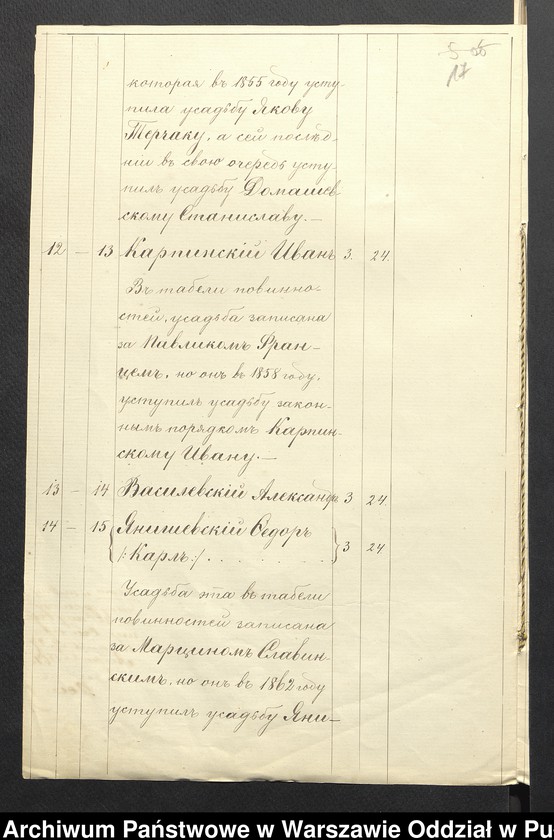 17
которая въ 1855 году усту-
пила усадьбу Якову
Терчаку, а сей послѣд-
ній въ свою очередь усту-
пилъ усадьбу Домашев-
скому Станиславу. —
12 — 13 Карпинскій Иванъ 3. 24.
Въ табели повинно-
стей, усадьба записана
за Павликомъ Фран-
цемъ, но онъ въ 1858 году,
уступилъ усадьбу закон-
нымъ порядкомъ Карпин-
скому Ивану. —
13 — 14 Василевскій Александръ 3 24.
14 — 15 Янишевскій Ѳедоръ
/:Карлъ:/ . . . . . . 3 24
Усадьба эта въ табели
повинностей записана
за Марциномъ Славин-
скимъ, но онъ въ 1862 году
уступилъ усадьбу Яни-
Archiwum Państwowe w Warszawie Oddział w Pu